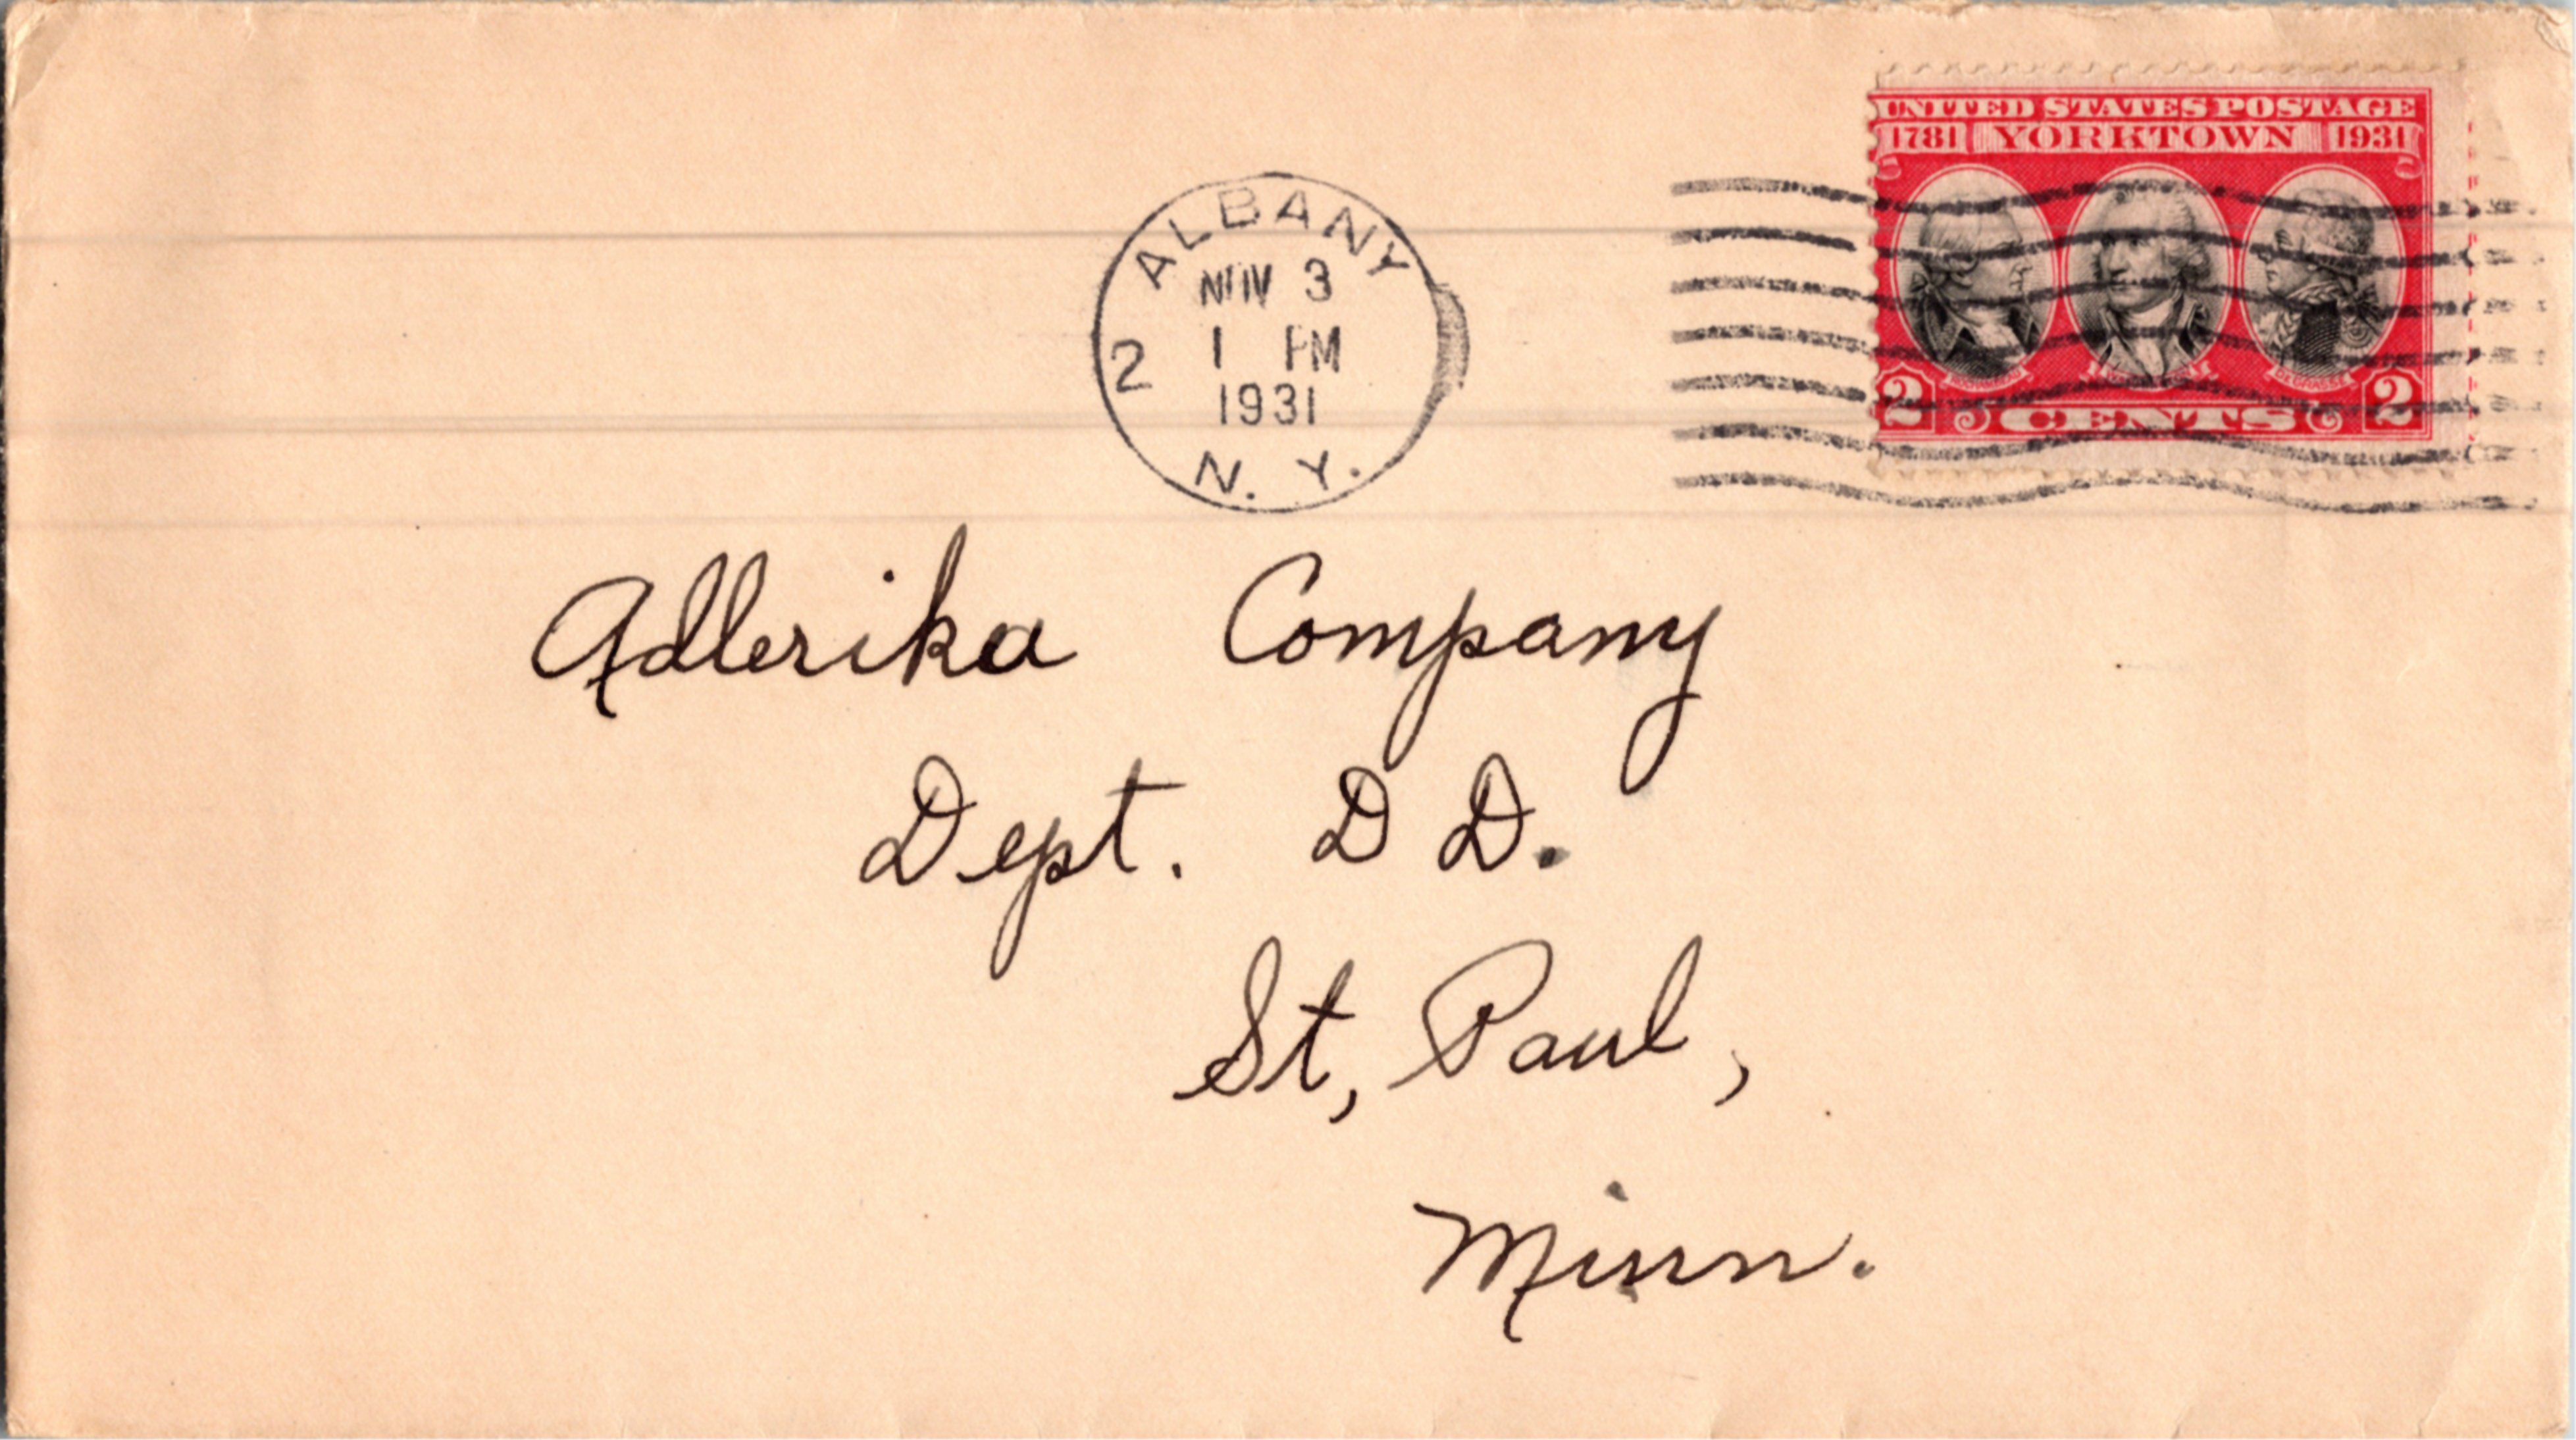 UNITED STATES POSTAGE
1781 YORKTOWN 1931
2 CENTS 2
ALBANY
NOV 3
2 1 PM
1931
N. Y.
Adlerika Company
Dept. D D.
St, Paul,
Minn.